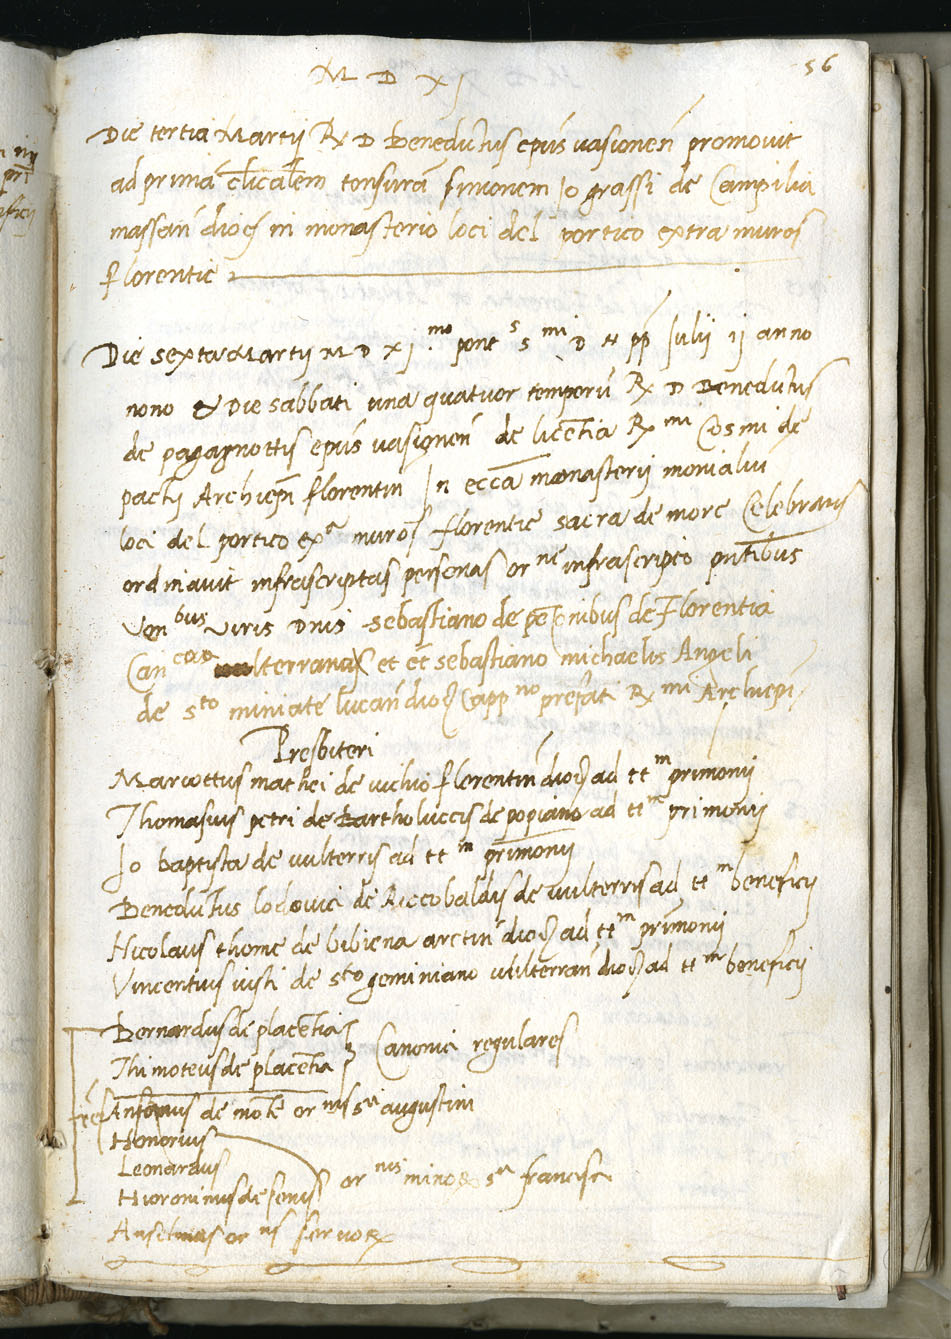 56
M D XJ
Die tertia Martij Rx D Benedictus epūs vasionen̄ promovit
ad primā clicalem tonsurā simonem Jo grassi de Campilia
massan̄ dioc̄ in monasterio loci del portico extra muros
florentie
Die sexta Martij M D xj mo pont s mi D n pp Julij ij anno
nono & Die sabbati una quatuor temperū Rx D Benedictus
de pagagnottis epūs vasionen̄ de licētia Rx mi Cosmi de
pactij Archiepī florentin In ecca monasterij monialiū
loci del portico exa muros florentie sacra de more Celebrans
ordinavit infrascriptas personas or ne infrascripto pn̄tibus
ven bus viris Dnis sebastiano de pe onibus de Florentia
Can co vulterrana et et sebastiano michaelis Angeli
de sto miniate lucan̄ dioc̄ Capp no prefat Rx mi Archiepi
Presbiteri
Mariottus mathei de vichio florentin̄ dioc̄ ad tt m primonij
Thomasius petri de bartholuccis de popiano ad tt m primonij
Jo baptista de vulterris ad tt m primonij
Benedictus lodovici de Riccobaldis de vulterris ad tt m beneficij
Nicolaus thome de bibiena aretin̄ dioc̄ ad tt m primonij
Vincentius iusti de sto geminiano vulterran̄ dioc̄ ad tt m beneficij
Bernardus de placētia
Thimoteus de placētia Canonici regulares
frēs Antonius de mōte or nis s ti augustini
Honorius
Leonardus
Hieronimus de senis or nis mino℞ s ti francisci
Anselmus or nis servo℞